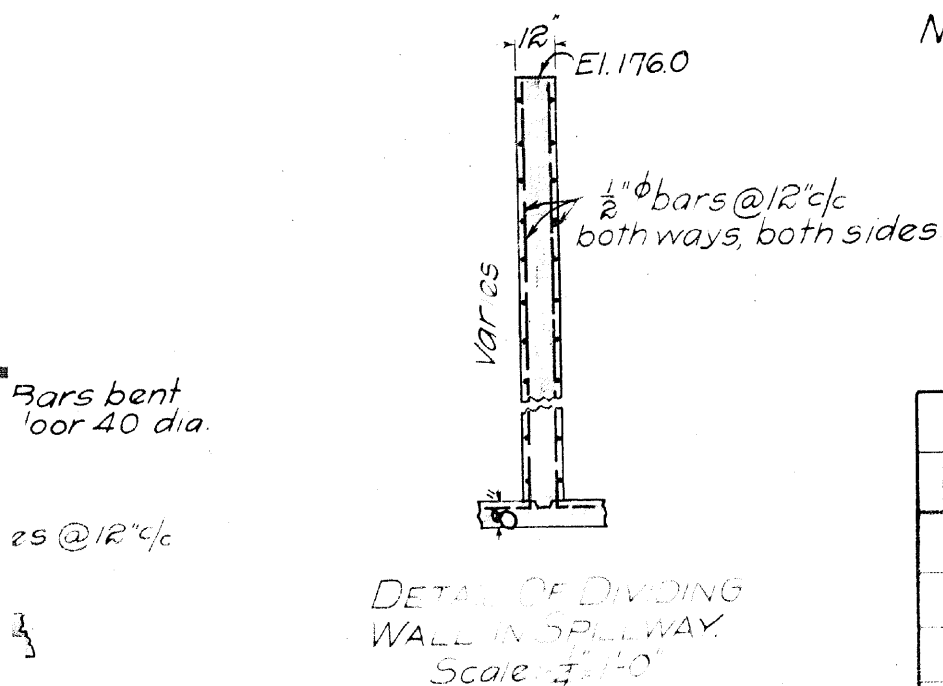 12"
El. 176.0
N
1/2" ϕ bars @ 12" c/c
both ways, both sides
Varies
Bars bent
loor 40 dia.
es @ 12" c/c
DETAIL OF DIVIDING
WALL IN SPILLWAY.
Scale 1/4"=1'-0"